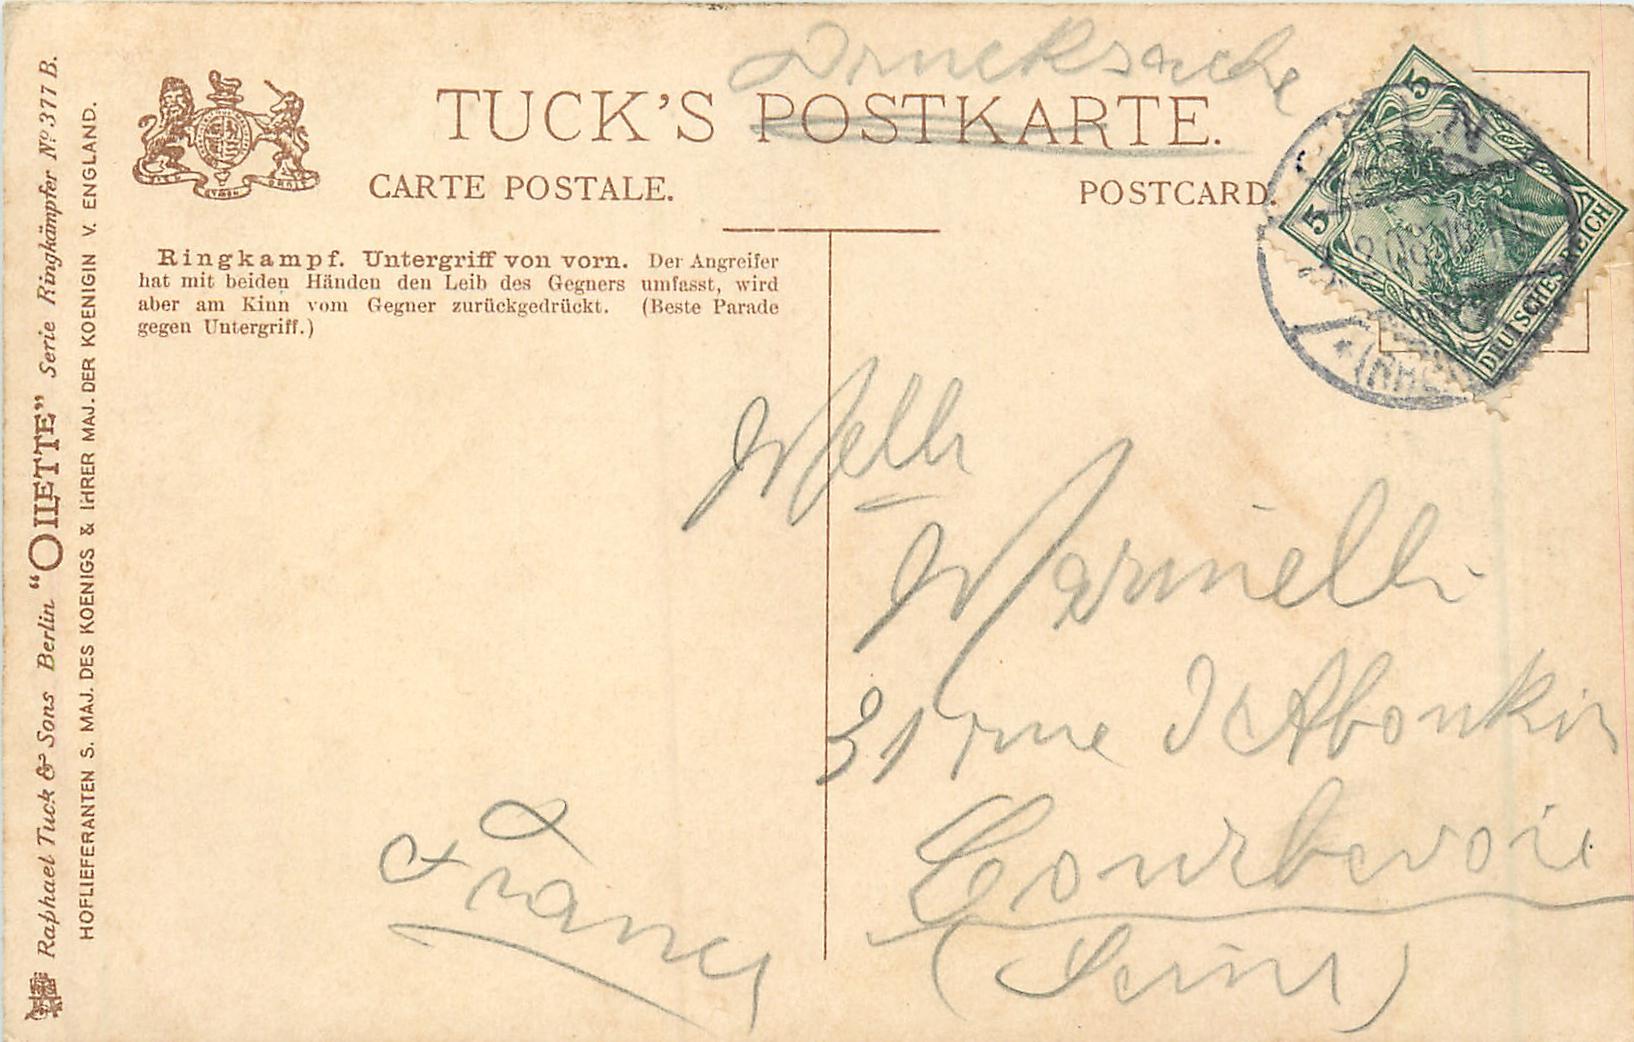 Drucksache
TUCK'S POSTKARTE.
CARTE POSTALE.
POSTCARD.
Ringkampf. Untergriff von vorn. Der Angreifer
hat mit beiden Händen den Leib des Gegners umfasst, wird
aber am Kinn vom Gegner zurückgedrückt. (Beste Parade
gegen Untergriff.)
Raphael Tuck & Sons Berlin "OILETTE" Serie Ringkämpfer No. 377 B.
HOFLIEFERANTEN S. MAJ. DES KOENIGS & IHRER MAJ. DER KOENIGIN V. ENGLAND.
5 5
DEUTSCHES REICH
Melle
Marinelli
31 rue d'Aboukir
Courbevoie
(Seine)
France